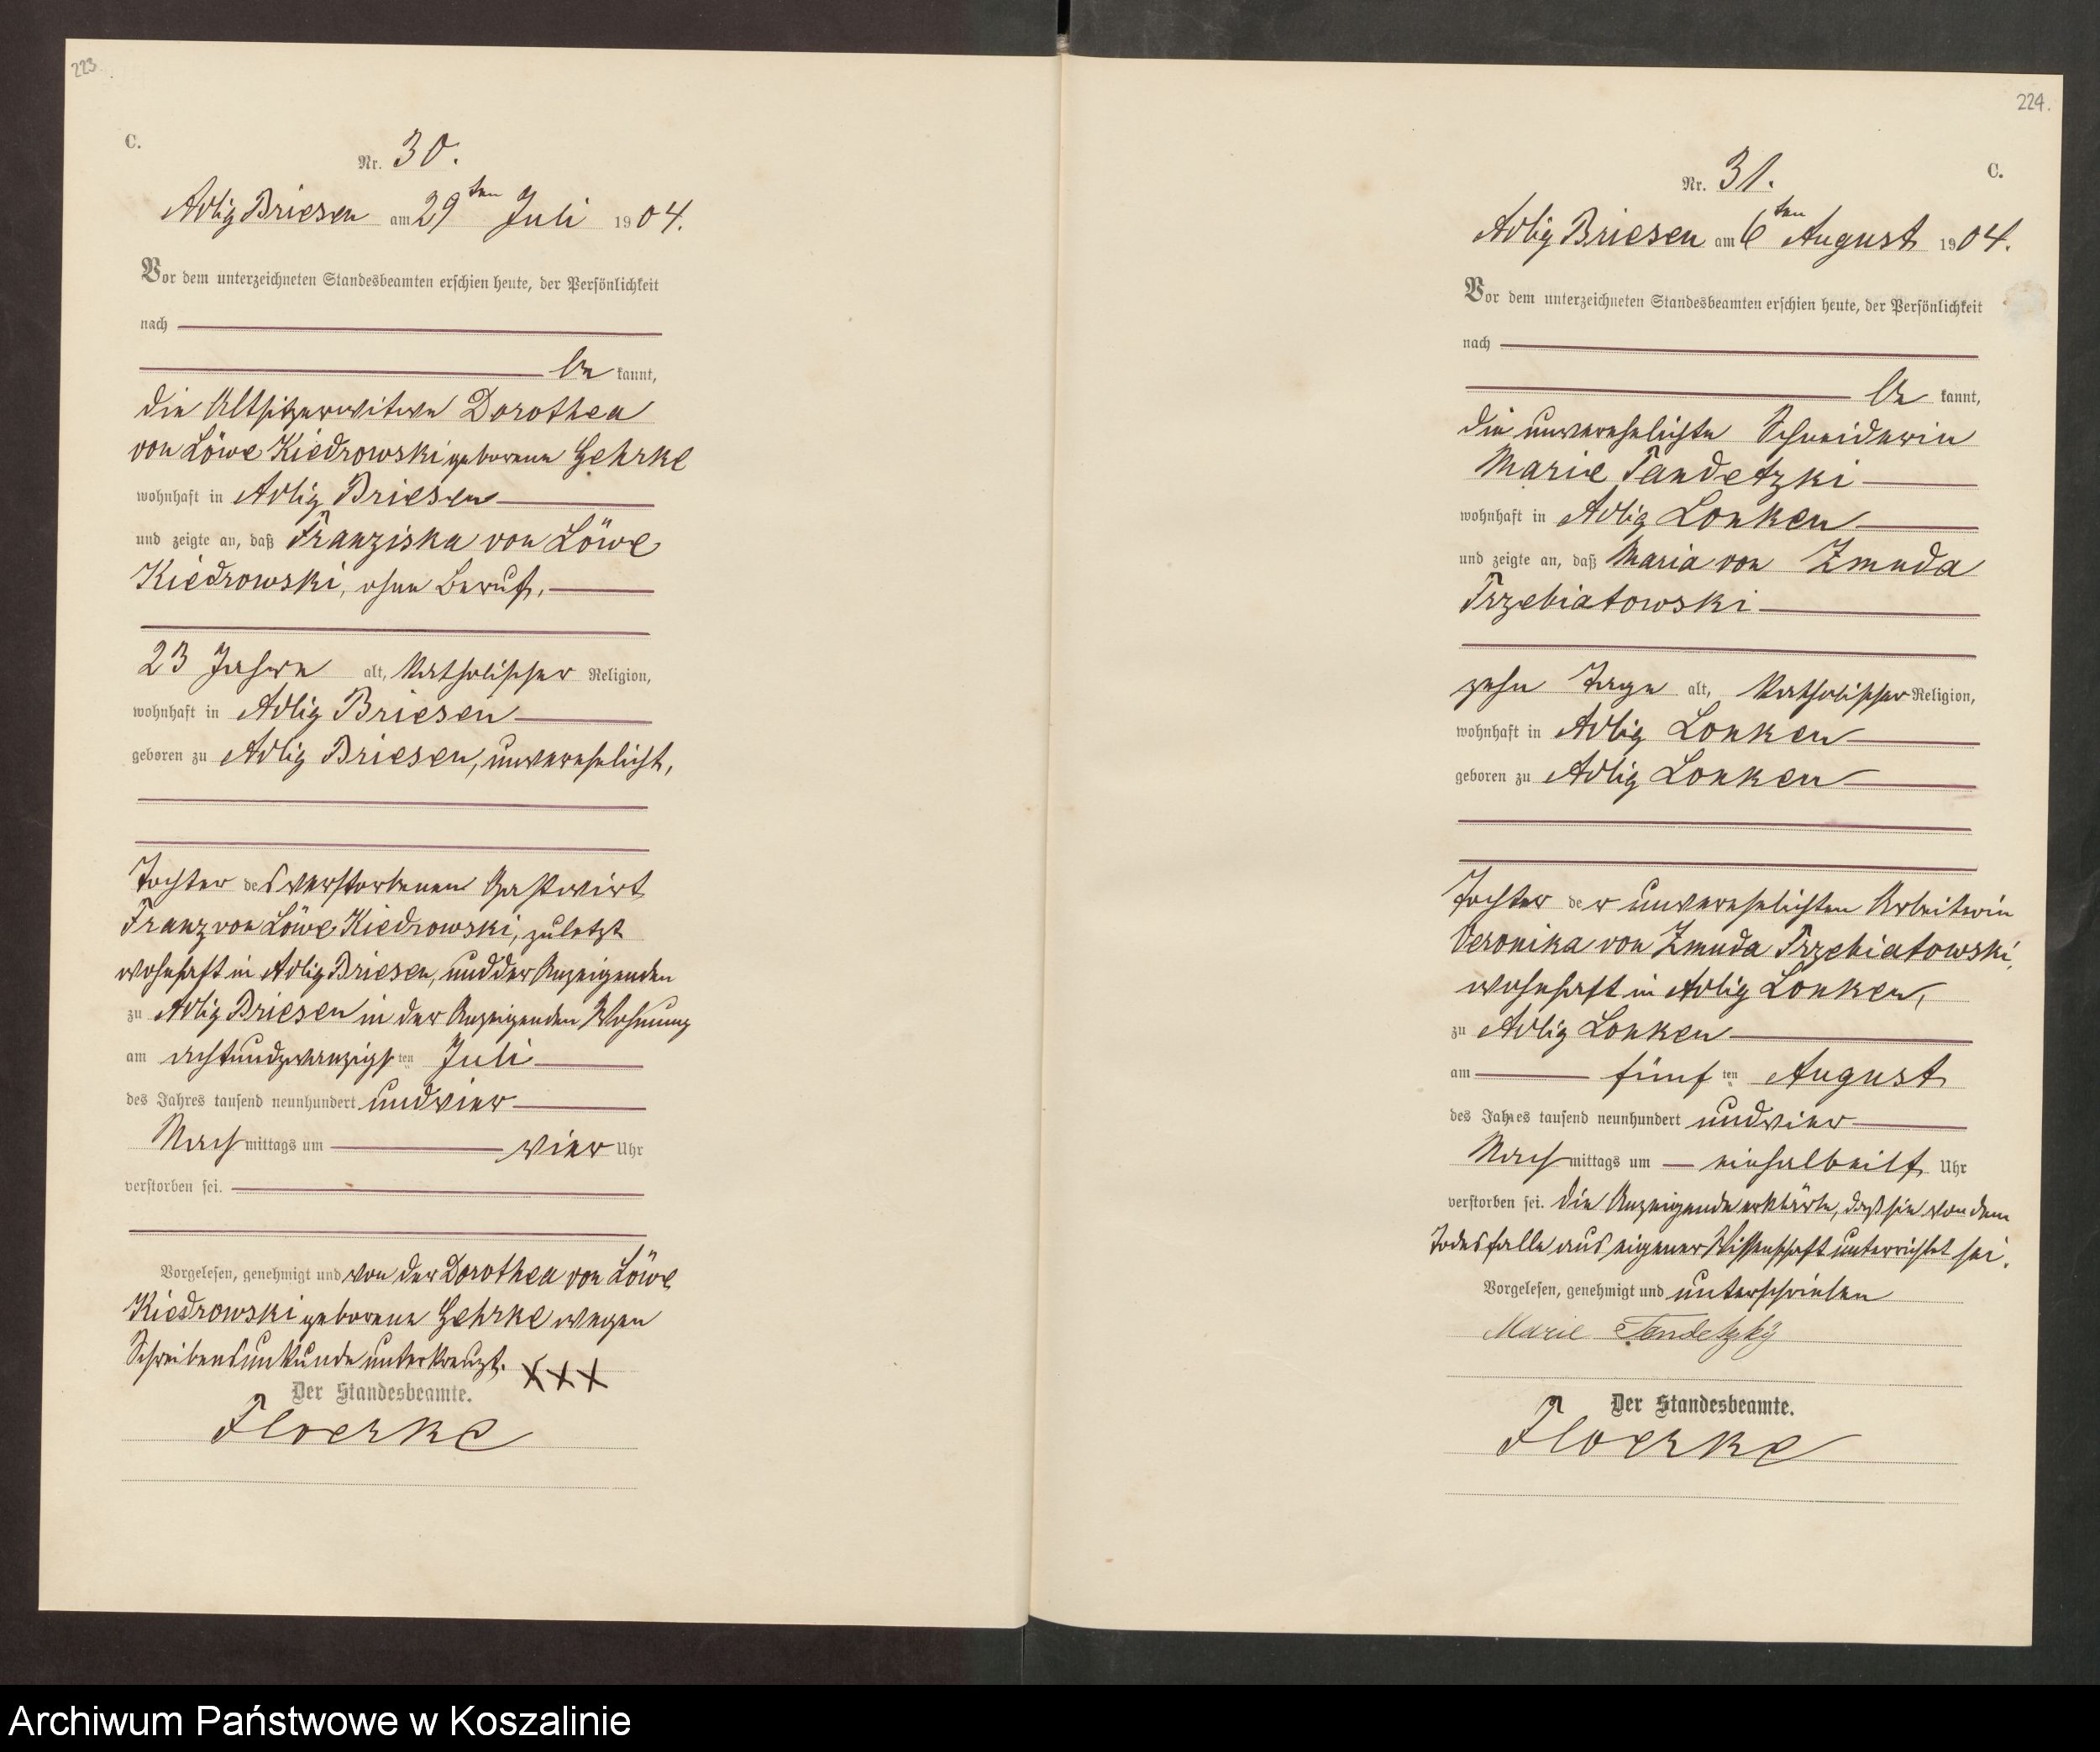 223.
C.
Nr. 30.
Adlig Briesen am 29ten Juli 1904.
Vor dem unterzeichneten Standesbeamten erschien heute, der Persönlichkeit
nach
be kannt,
die Altsitzerwitwe Dorothea
von Löwe Kiedrowski geborene Gehrke
wohnhaft in Adlig Briesen
und zeigte an, daß Franziska von Löwe
Kiedrowski, ohne Beruf,
23 Jahre alt, katholischer Religion,
wohnhaft in Adlig Briesen
geboren zu Adlig Briesen, unverehelicht,
Tochter des verstorbenen Gastwirt
Franz von Löwe Kiedrowski, zuletzt
wohnhaft in Adlig Briesen, und der Anzeigenden
zu Adlig Briesen in der Anzeigenden Wohnung
am achtundzwanzigsten Juli
des Jahres tausend neunhundert undvier
Nachmittags um vier Uhr
verstorben sei.
Vorgelesen, genehmigt und von der Dorothea von Löwe
Kiedrowski geborene Gehrke wegen
Schreibensunkunde unterkreuzt. XXX
Der Standesbeamte.
Floerke
224.
C.
Nr. 31.
Adlig Briesen am 6ten August 1904.
Vor dem unterzeichneten Standesbeamten erschien heute, der Persönlichkeit
nach
be kannt,
die unverehelichte Schneiderin
Marie Tandetzki
wohnhaft in Adlig Lonken
und zeigte an, daß Maria von Zmuda
Trzebiatowski
zehn Tage alt, katholischer Religion,
wohnhaft in Adlig Lonken
geboren zu Adlig Lonken
Tochter der unverehelichten Arbeiterin
Veronika von Zmuda Trzebiatowski,
wohnhaft in Adlig Lonken,
zu Adlig Lonken
am fünften August
des Jahres tausend neunhundert undvier
Nachmittags um einhalbeilf Uhr
verstorben sei. Die Anzeigende erklärte, daß sie von dem
Todesfalle aus eigener Wissenschaft unterrichtet sei.
Vorgelesen, genehmigt und unterschrieben
Marie Tandetzky
Der Standesbeamte.
Floerke
Archiwum Państwowe w Koszalinie